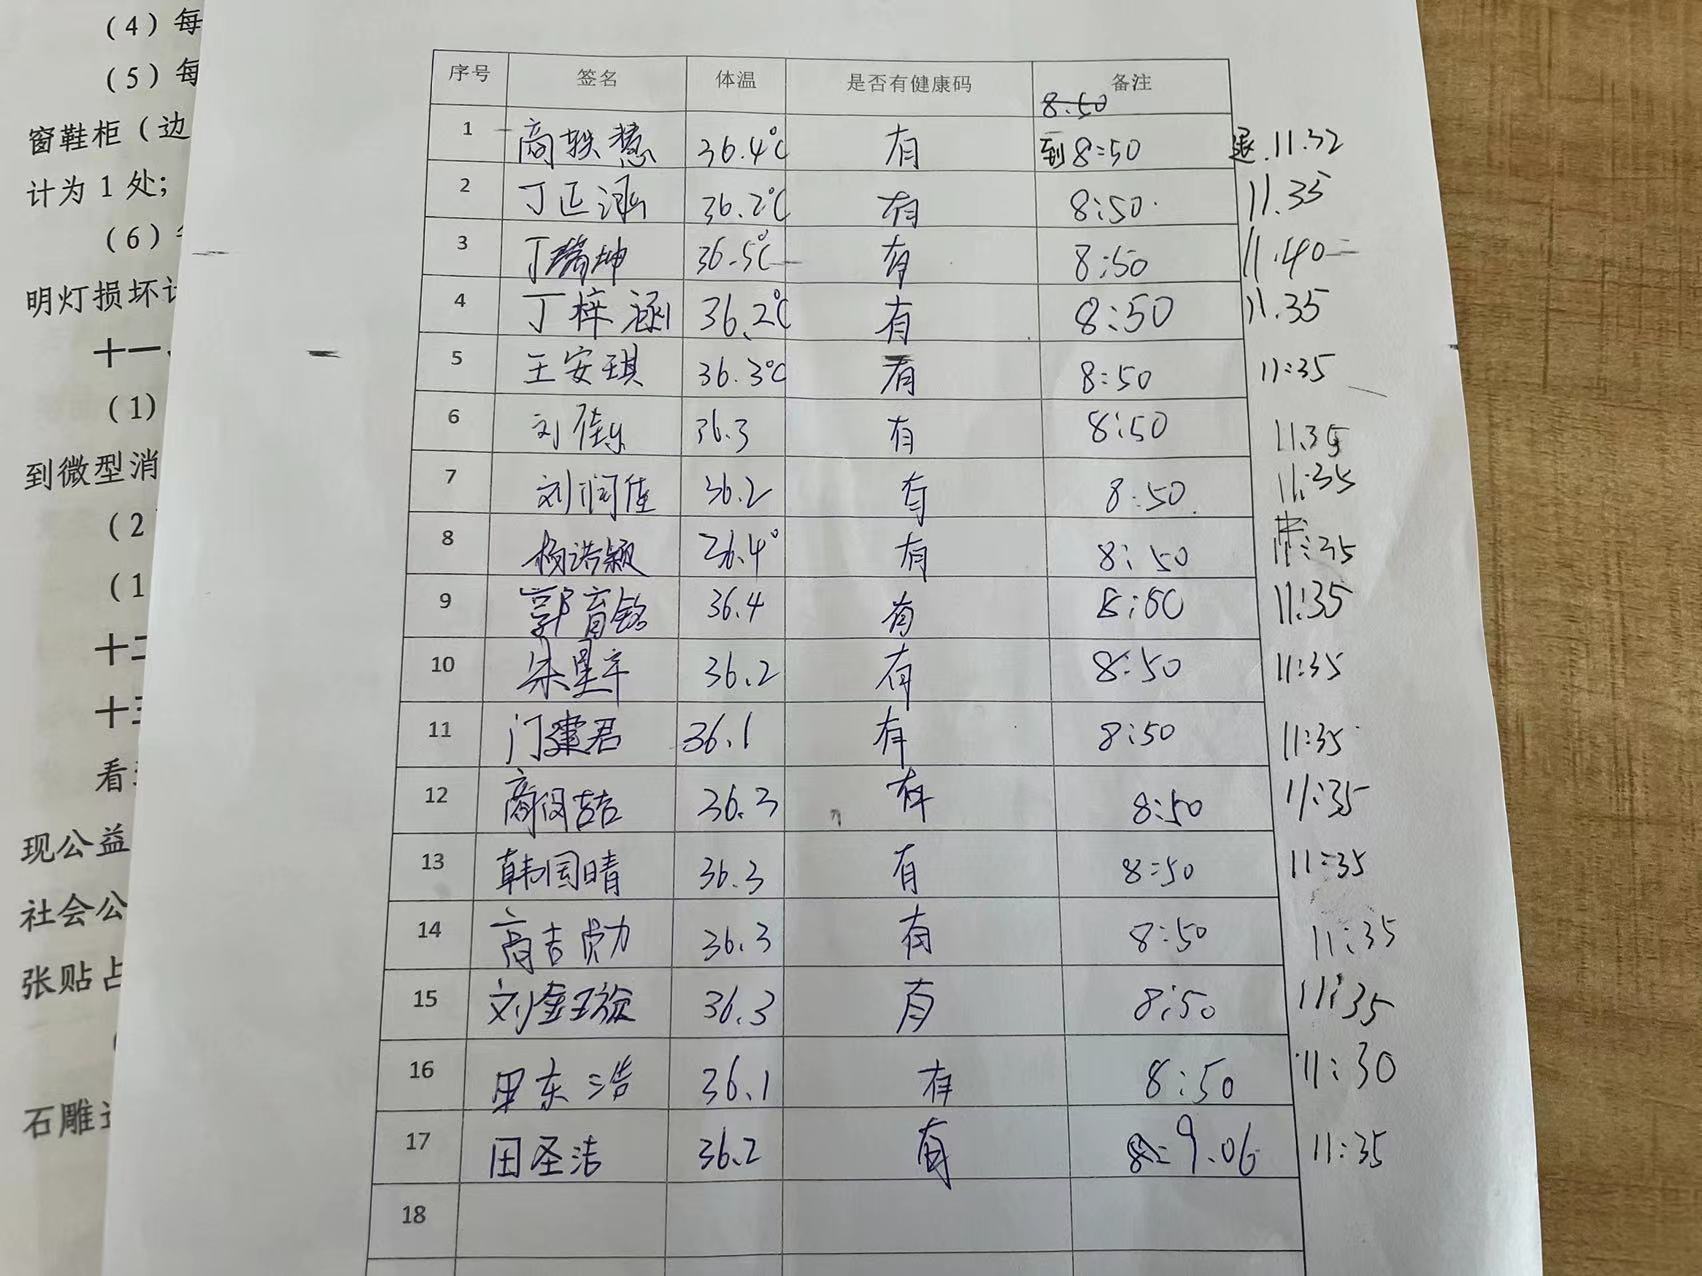 (4) 每
(5) 每
窗鞋柜 (边
计为 1 处;
(6)
明灯损坏
十一、
(1)
到微型消
(2
(1
十二
十三
看
现公益
社会公
张贴占
石雕
序号 签名 体温 是否有健康码 备注
8.50
1 高轶慧 36.4℃ 有 到8:50 退.11.32
2 丁正涵 36.2℃ 有 8:50 11.35
3 丁瑞坤 36.5℃ 有 8:50 11.40
4 丁梓涵 36.2℃ 有 8:50 11.35
5 王安琪 36.3℃ 有 8:50 11:35
6 刘佳乐 36.3 有 8:50 11.35
7 刘润佳 36.2 有 8:50 11:35
8 杨浩颖 36.4° 有 8:50 11:35
9 郭育铭 36.4 有 8:50 11:35
10 36.2 有 8:50 11:35
11 门建君 36.1 有 8:50 11:35
12 36.3 有 8:50 11:35
13 韩国晴 36.3 有 8:50 11:35
14 36.3 有 8:50 11:35
15 刘金璇 36.3 有 8:50 11:35
16 东浩 36.1 有 8:50 11:30
17 田圣洁 36.2 有 9.06 11:35
18